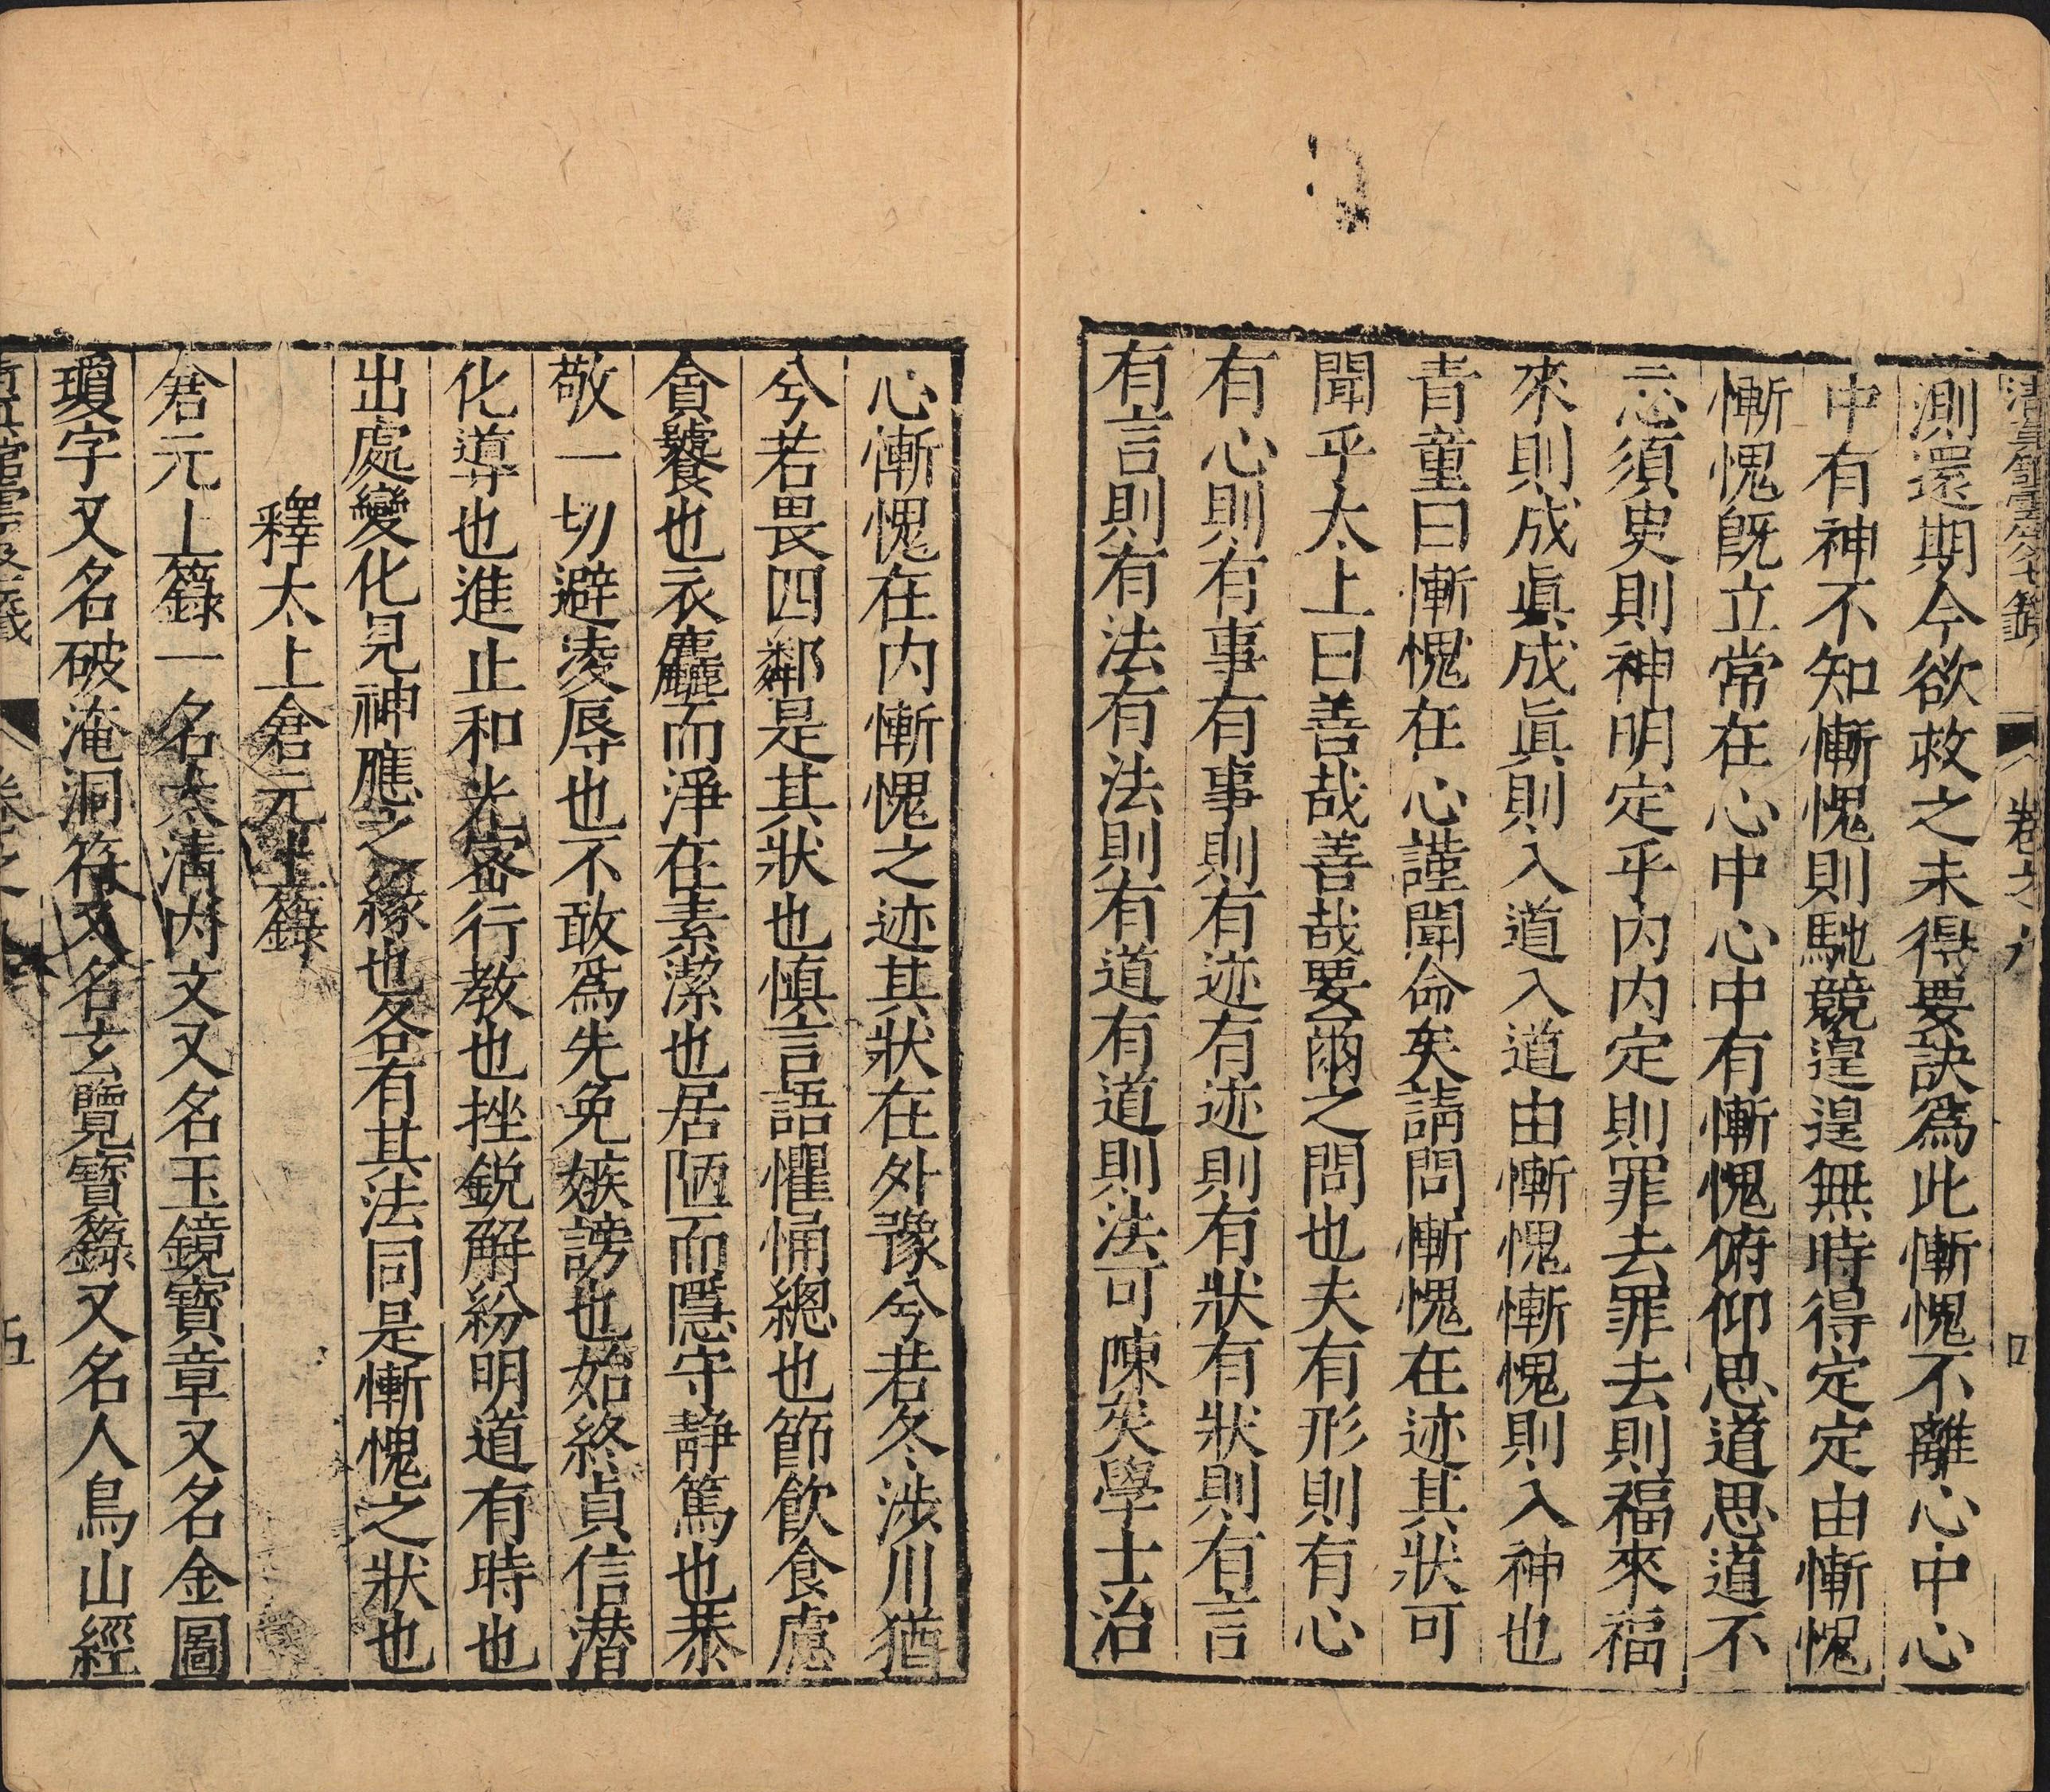 測還期今欲救之未得要訣為此慚愧不離心中心
中有神不知慚愧則馳競遑遑無時得定定由慚愧
慚愧既立常在心中心中有慚愧俯仰思道思道不
忘須臾則神明定乎内内定則罪去罪去則福來福
來則成眞成眞則入道入道由慚愧慚愧則入神也
青童曰慚愧在心謹聞命矣請問慚愧在迹其狀可
聞乎太上曰善哉善哉要爾之問也夫有形則有心
有心則有事有事則有迹有迹則有狀有狀則有言
有言則有法有法則有道有道則法可陳矣學士治
心慚愧在内慚愧之迹其狀在外豫兮若冬涉川猶
兮若畏四鄰是其狀也慎言語懼悀總也節飲食慮
貪饕也衣麤而淨在素潔也居陋而隱守静篤也恭
敬一切避凌辱也不敢爲先免嫉謗也始終貞信潜
化導也進止和光密行教也挫鋭解紛明道有時也
出處變化見神應之緣也各有其法同是慚愧之狀也
釋太上倉元上籙
倉元上籙一名太清内文又名玉鏡寶章又名金圖
瓊字又名破淹洞符又名玄覽寶籙又名人鳥山經
卷之
五